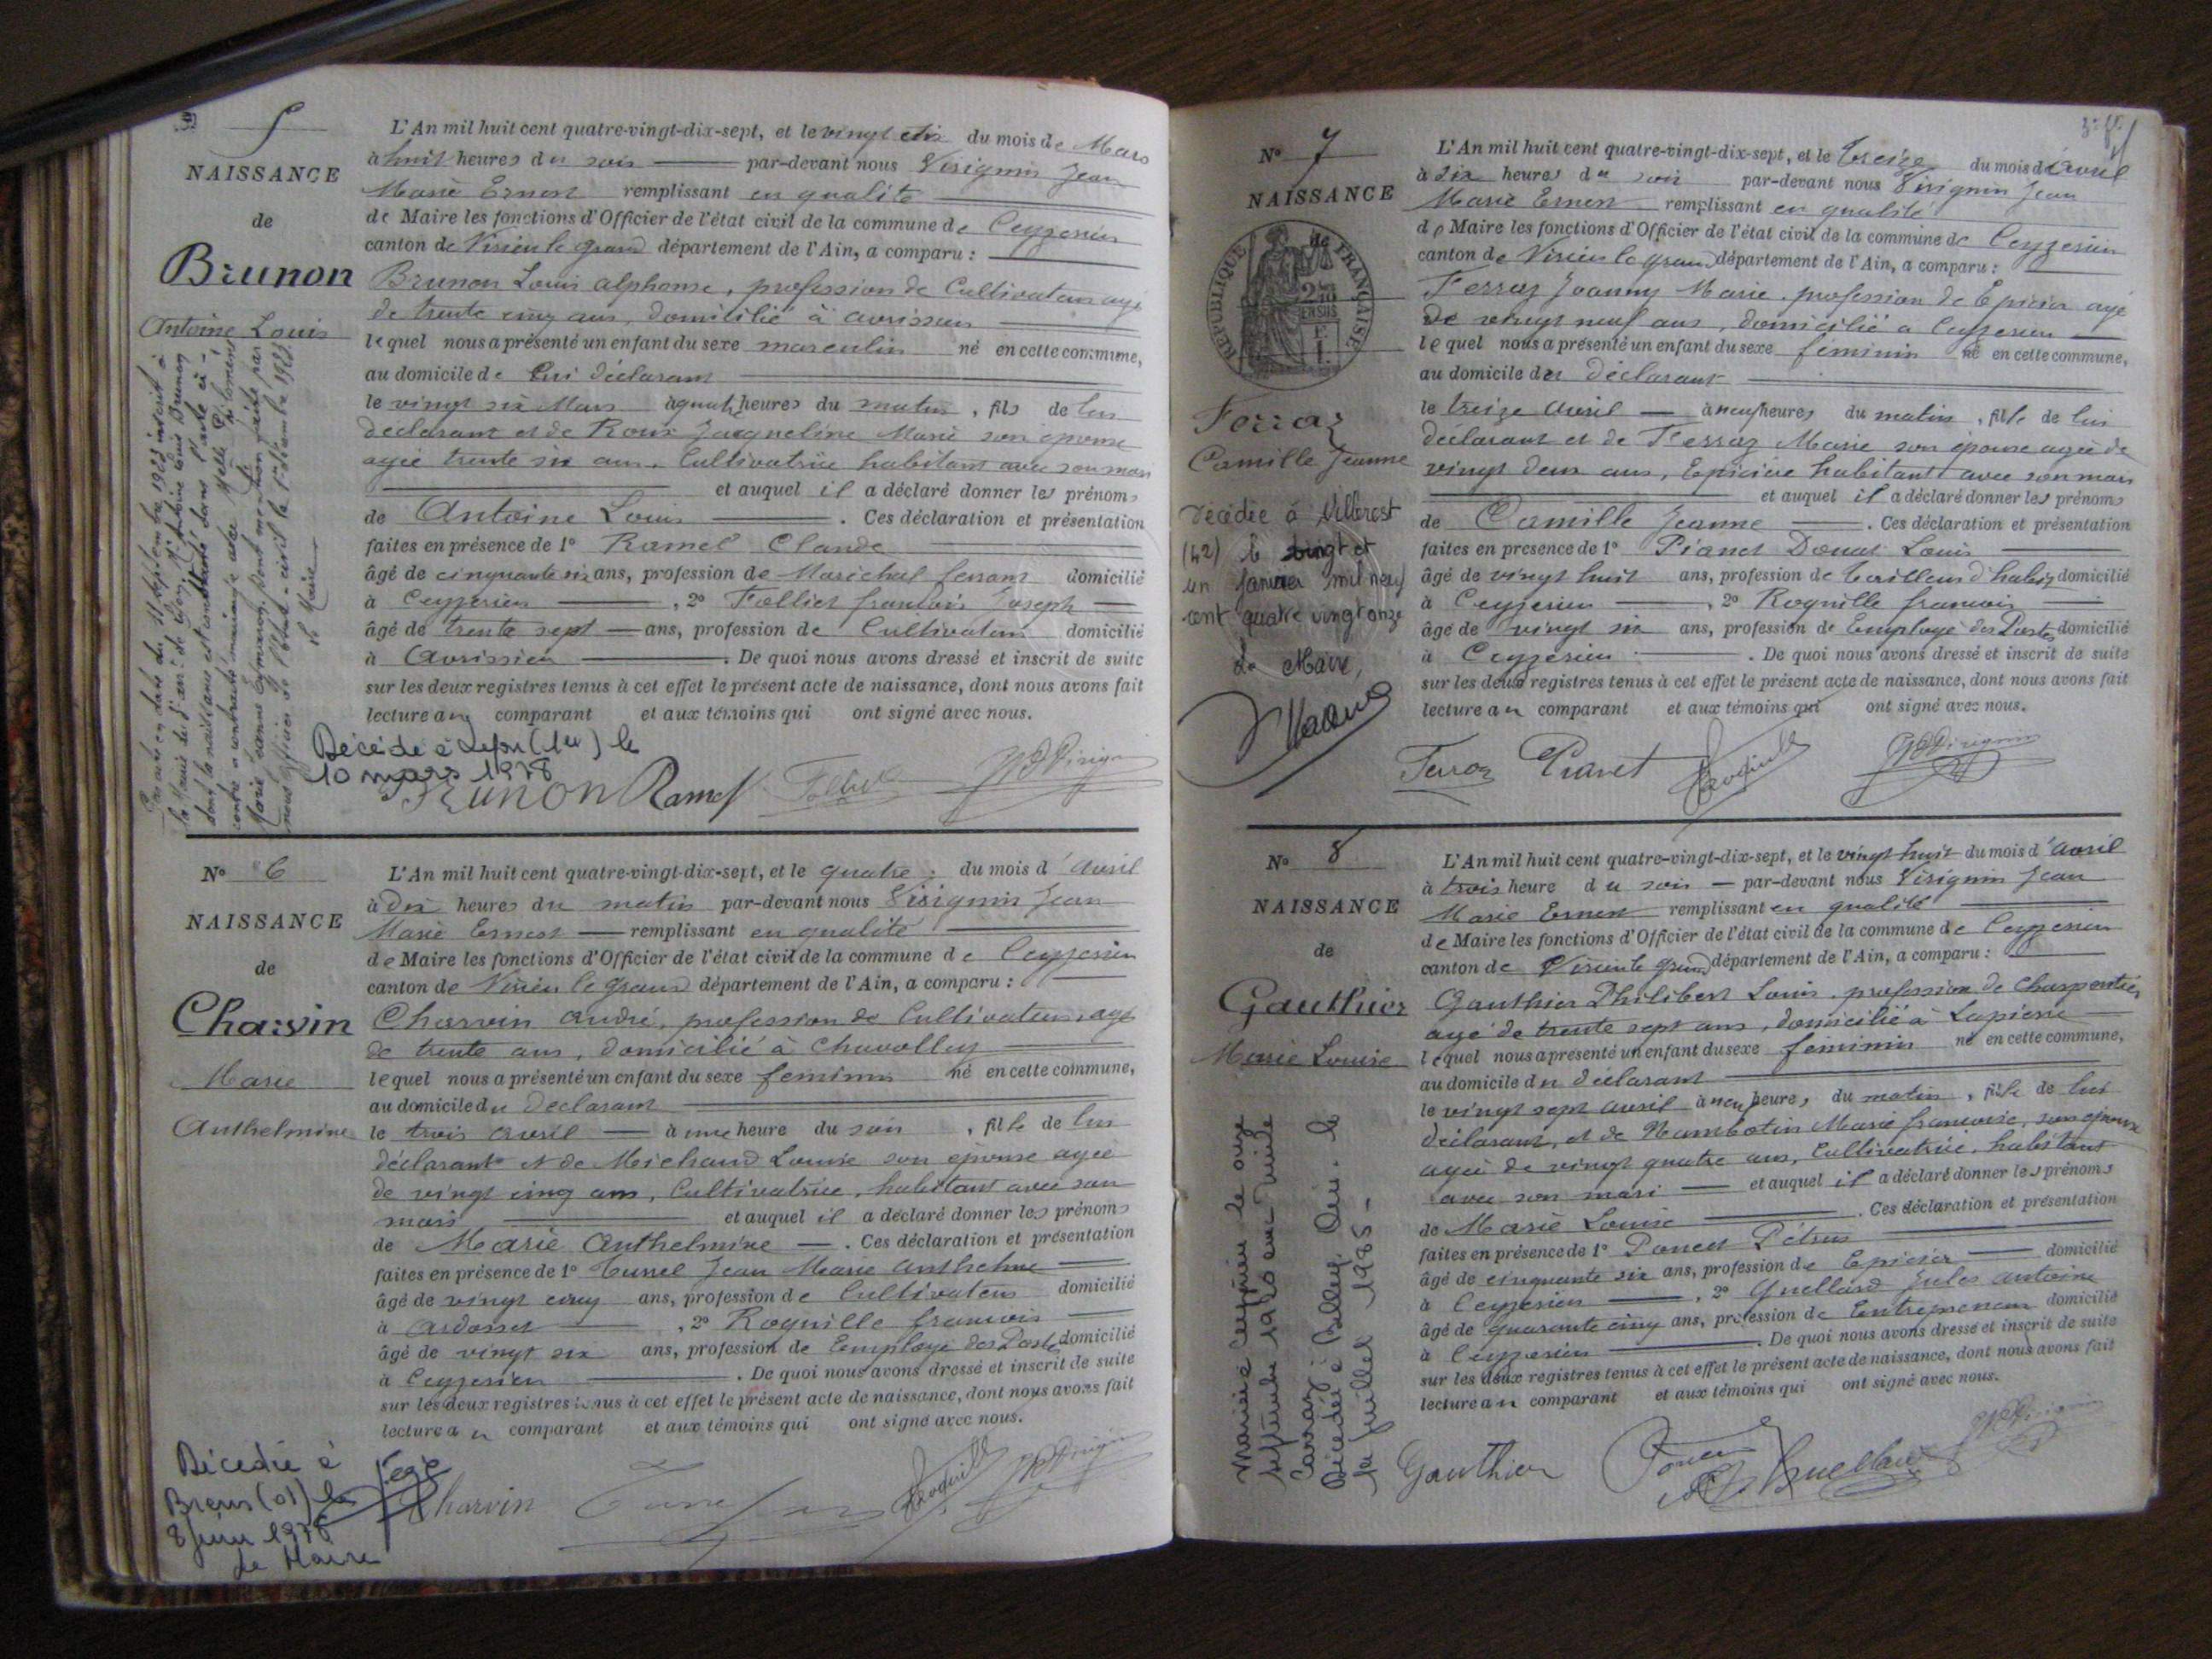 5
NAISSANCE
de
Brunon
Antoine Louis
L'An mil huit cent quatre-vingt-dix-sept, et le vingt six du mois de Mars
à huit heures du soir par-devant nous Virignin Jean
Marie Ernest remplissant en qualité
de Maire les fonctions d'Officier de l'état civil de la commune de Ceyzerieu
canton de Virieu le grand département de l'Ain, a comparu :
Brunon Louis alphonse, profession de Cultivateur agé
de trente cinq ans, domicilié à avrissieu
lequel nous a présenté un enfant du sexe masculin né en cette commune,
au domicile de lui déclarant
le vingt six Mars à quatre heures du matin, fils de lui
déclarant et de Roux Jacqueline Marie son épouse
agée trente six ans, Cultivatrice habitant avec son mari
et auquel il a déclaré donner les prénoms
de Antoine Louis . Ces déclaration et présentation
faites en présence de 1° Ramel Claude
âgé de cinquante six ans, profession de Maréchal ferrant domicilié
à Ceyzerieu , 2° Folliet francois Joseph
âgé de trente sept ans, profession de Cultivateur domicilié
à Avrissieu . De quoi nous avons dressé et inscrit de suite
sur les deux registres tenus à cet effet le présent acte de naissance, dont nous avons fait
lecture au comparant et aux témoins qui ont signé avec nous.
Décédé à Lyon le
10 mars 1978
BRUNON Ramel Folliet
N° 6
NAISSANCE
de
Charvin
Marie
Anthelmine
L'An mil huit cent quatre-vingt-dix-sept, et le quatre du mois d'avril
à dix heures du matin par-devant nous Virignin Jean
Marie Ernest remplissant en qualité
de Maire les fonctions d'Officier de l'état civil de la commune de Ceyzerieu
canton de Virieu le grand département de l'Ain, a comparu :
Charvin André, profession de Cultivateur, agé
de trente ans, domicilié à Chavolley
lequel nous a présenté un enfant du sexe feminin né en cette commune,
au domicile du declarant
le trois avril à une heure du soir , fille de lui
déclarant et de Michaud Louise son épouse agée
de vingt cinq ans, Cultivatrice, habitant avec son
mari et auquel il a déclaré donner les prénoms
de Marie Anthelmine . Ces déclaration et présentation
faites en présence de 1° Jean Marie Anthelme
âgé de vingt cinq ans, profession de Cultivateur domicilié
à Ardosset , 2° Roquille francois
âgé de vingt six ans, profession de Employé des Postes domicilié
à Ceyzerieu . De quoi nous avons dressé et inscrit de suite
sur les deux registres tenus à cet effet le présent acte de naissance, dont nous avons fait
lecture au comparant et aux témoins qui ont signé avec nous.
Décédée à
Brens (01) le
8 juin 1978
Le Maire
Charvin Roquille
N° 7
NAISSANCE
de
REPUBLIQUE FRANÇAISE
Ferraz
Camille Jeanne
Décédée à Villerest
(42) le vingt et
un janvier mil neuf
cent quatre vingt onze
Le Maire,
L'An mil huit cent quatre-vingt-dix-sept, et le treize du mois d'avril
à six heures du soir par-devant nous Virignin Jean
Marie Ernest remplissant en qualité
de Maire les fonctions d'Officier de l'état civil de la commune de Ceyzerieu
canton de Virieu le grand département de l'Ain, a comparu :
Ferraz Joanny Marie, profession de Epicier agé
de vingt neuf ans, domicilié a Ceyzerieu
lequel nous a présenté un enfant du sexe féminin né en cette commune,
au domicile du déclarant
le treize avril à neuf heures du matin , fille de lui
déclarant et de Ferraz Marie son épouse agée de
vingt deux ans, Epicière habitant avec son mari
et auquel il a déclaré donner les prénoms
de Camille Jeanne . Ces déclaration et présentation
faites en présence de 1° Pianet Donat Louis
âgé de vingt huit ans, profession de tailleur d'habits domicilié
à Ceyzerieu , 2° Roquille francois
âgé de vingt six ans, profession de Employé des Postes domicilié
à Ceyzerieu . De quoi nous avons dressé et inscrit de suite
sur les deux registres tenus à cet effet le présent acte de naissance, dont nous avons fait
lecture au comparant et aux témoins qui ont signé avec nous.
Ferraz Pianet Roquille
N° 8
NAISSANCE
de
Gauthier
Marie Louise
Mariée à Ceyzérieu le onze
septembre 1920 avec
Décédée à Belley, Ain, le
juillet 1985
L'An mil huit cent quatre-vingt-dix-sept, et le vingt huit du mois d'avril
à trois heure du soir par-devant nous Virignin Jean
Marie Ernest remplissant en qualité
de Maire les fonctions d'Officier de l'état civil de la commune de Ceyzerieu
canton de Virieu le grand département de l'Ain, a comparu :
Gauthier Philibert Louis, profession de Charpentier
agé de trente sept ans, domicilié à Lapierre
lequel nous a présenté un enfant du sexe féminin né en cette commune,
au domicile du déclarant
le vingt sept avril à neuf heures du matin , fille de lui
déclarant, et de Humbotin Marie francoise, son épouse
agée de vingt quatre ans, Cultivatrice, habitant
avec son mari et auquel il a déclaré donner les prénoms
de Marie Louise . Ces déclaration et présentation
faites en présence de 1° Poncet Pétrus
âgé de cinquante six ans, profession de Epicier domicilié
à Ceyzerieu , 2° Quellard Jules antoine
âgé de quarante cinq ans, profession de Entrepreneur domicilié
à Ceyzerieu . De quoi nous avons dressé et inscrit de suite
sur les deux registres tenus à cet effet le présent acte de naissance, dont nous avons fait
lecture au comparant et aux témoins qui ont signé avec nous.
Gauthier Poncet